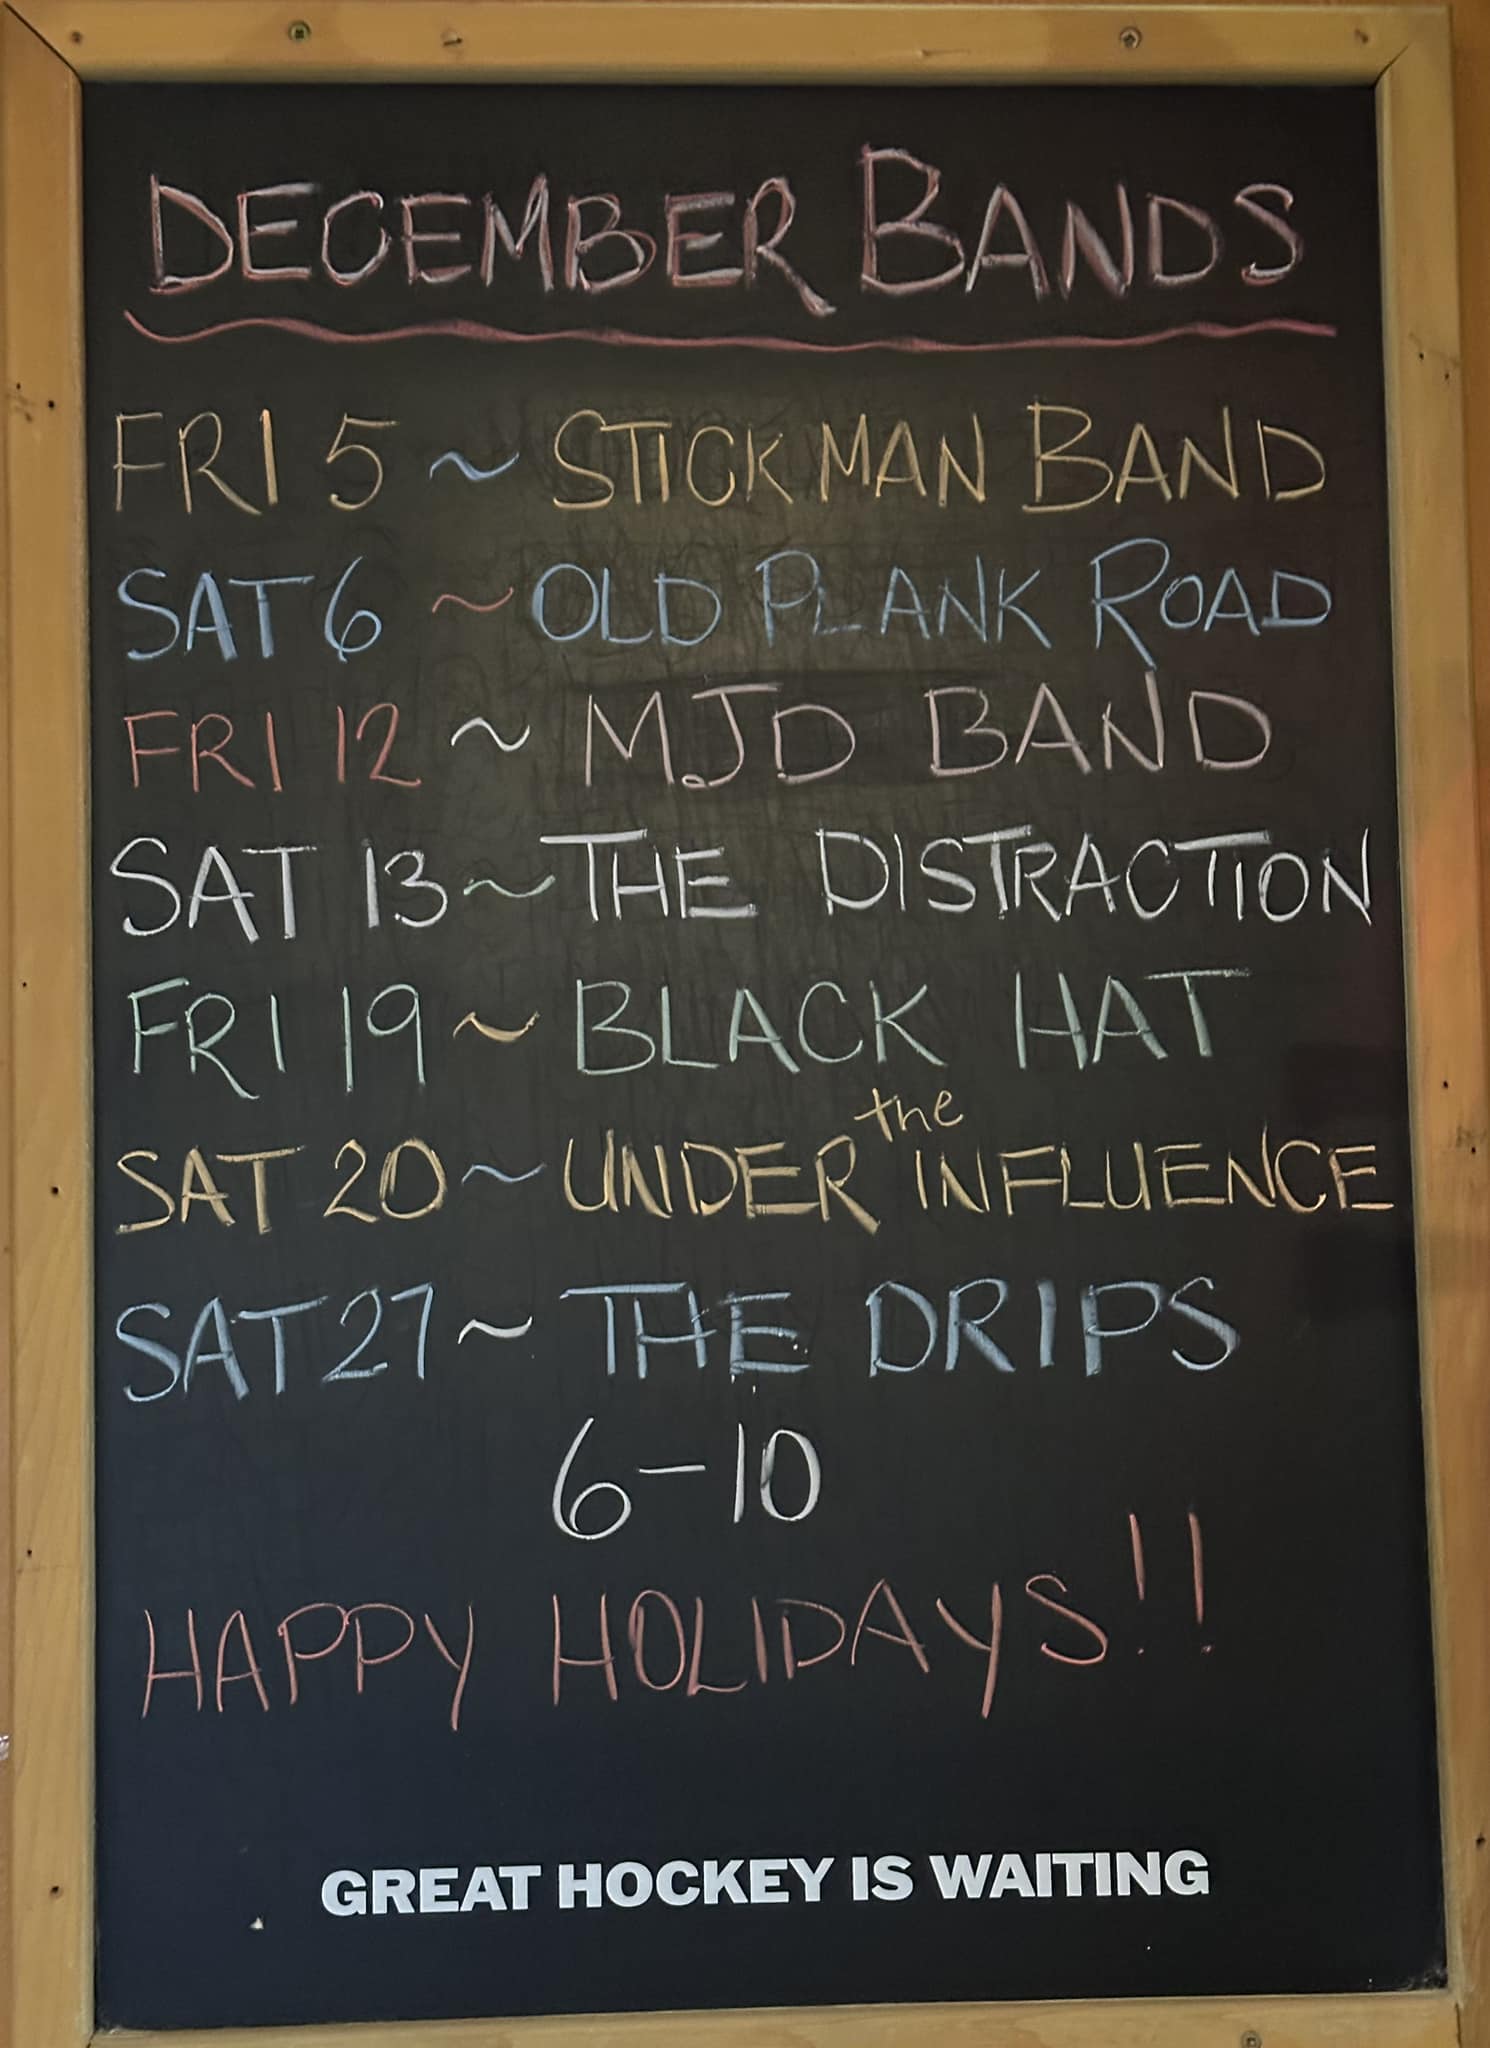 DECEMBER BANDS
FRI 5 ~ STICKMAN BAND
SAT 6 ~ OLD PLANK ROAD
FRI 12 ~ MJD BAND
SAT 13 ~ THE DISTRACTION
FRI 19 ~ BLACK HAT
SAT 20 ~ UNDER the INFLUENCE
SAT 27 ~ THE DRIPS
6-10
HAPPY HOLIDAYS!!
GREAT HOCKEY IS WAITING